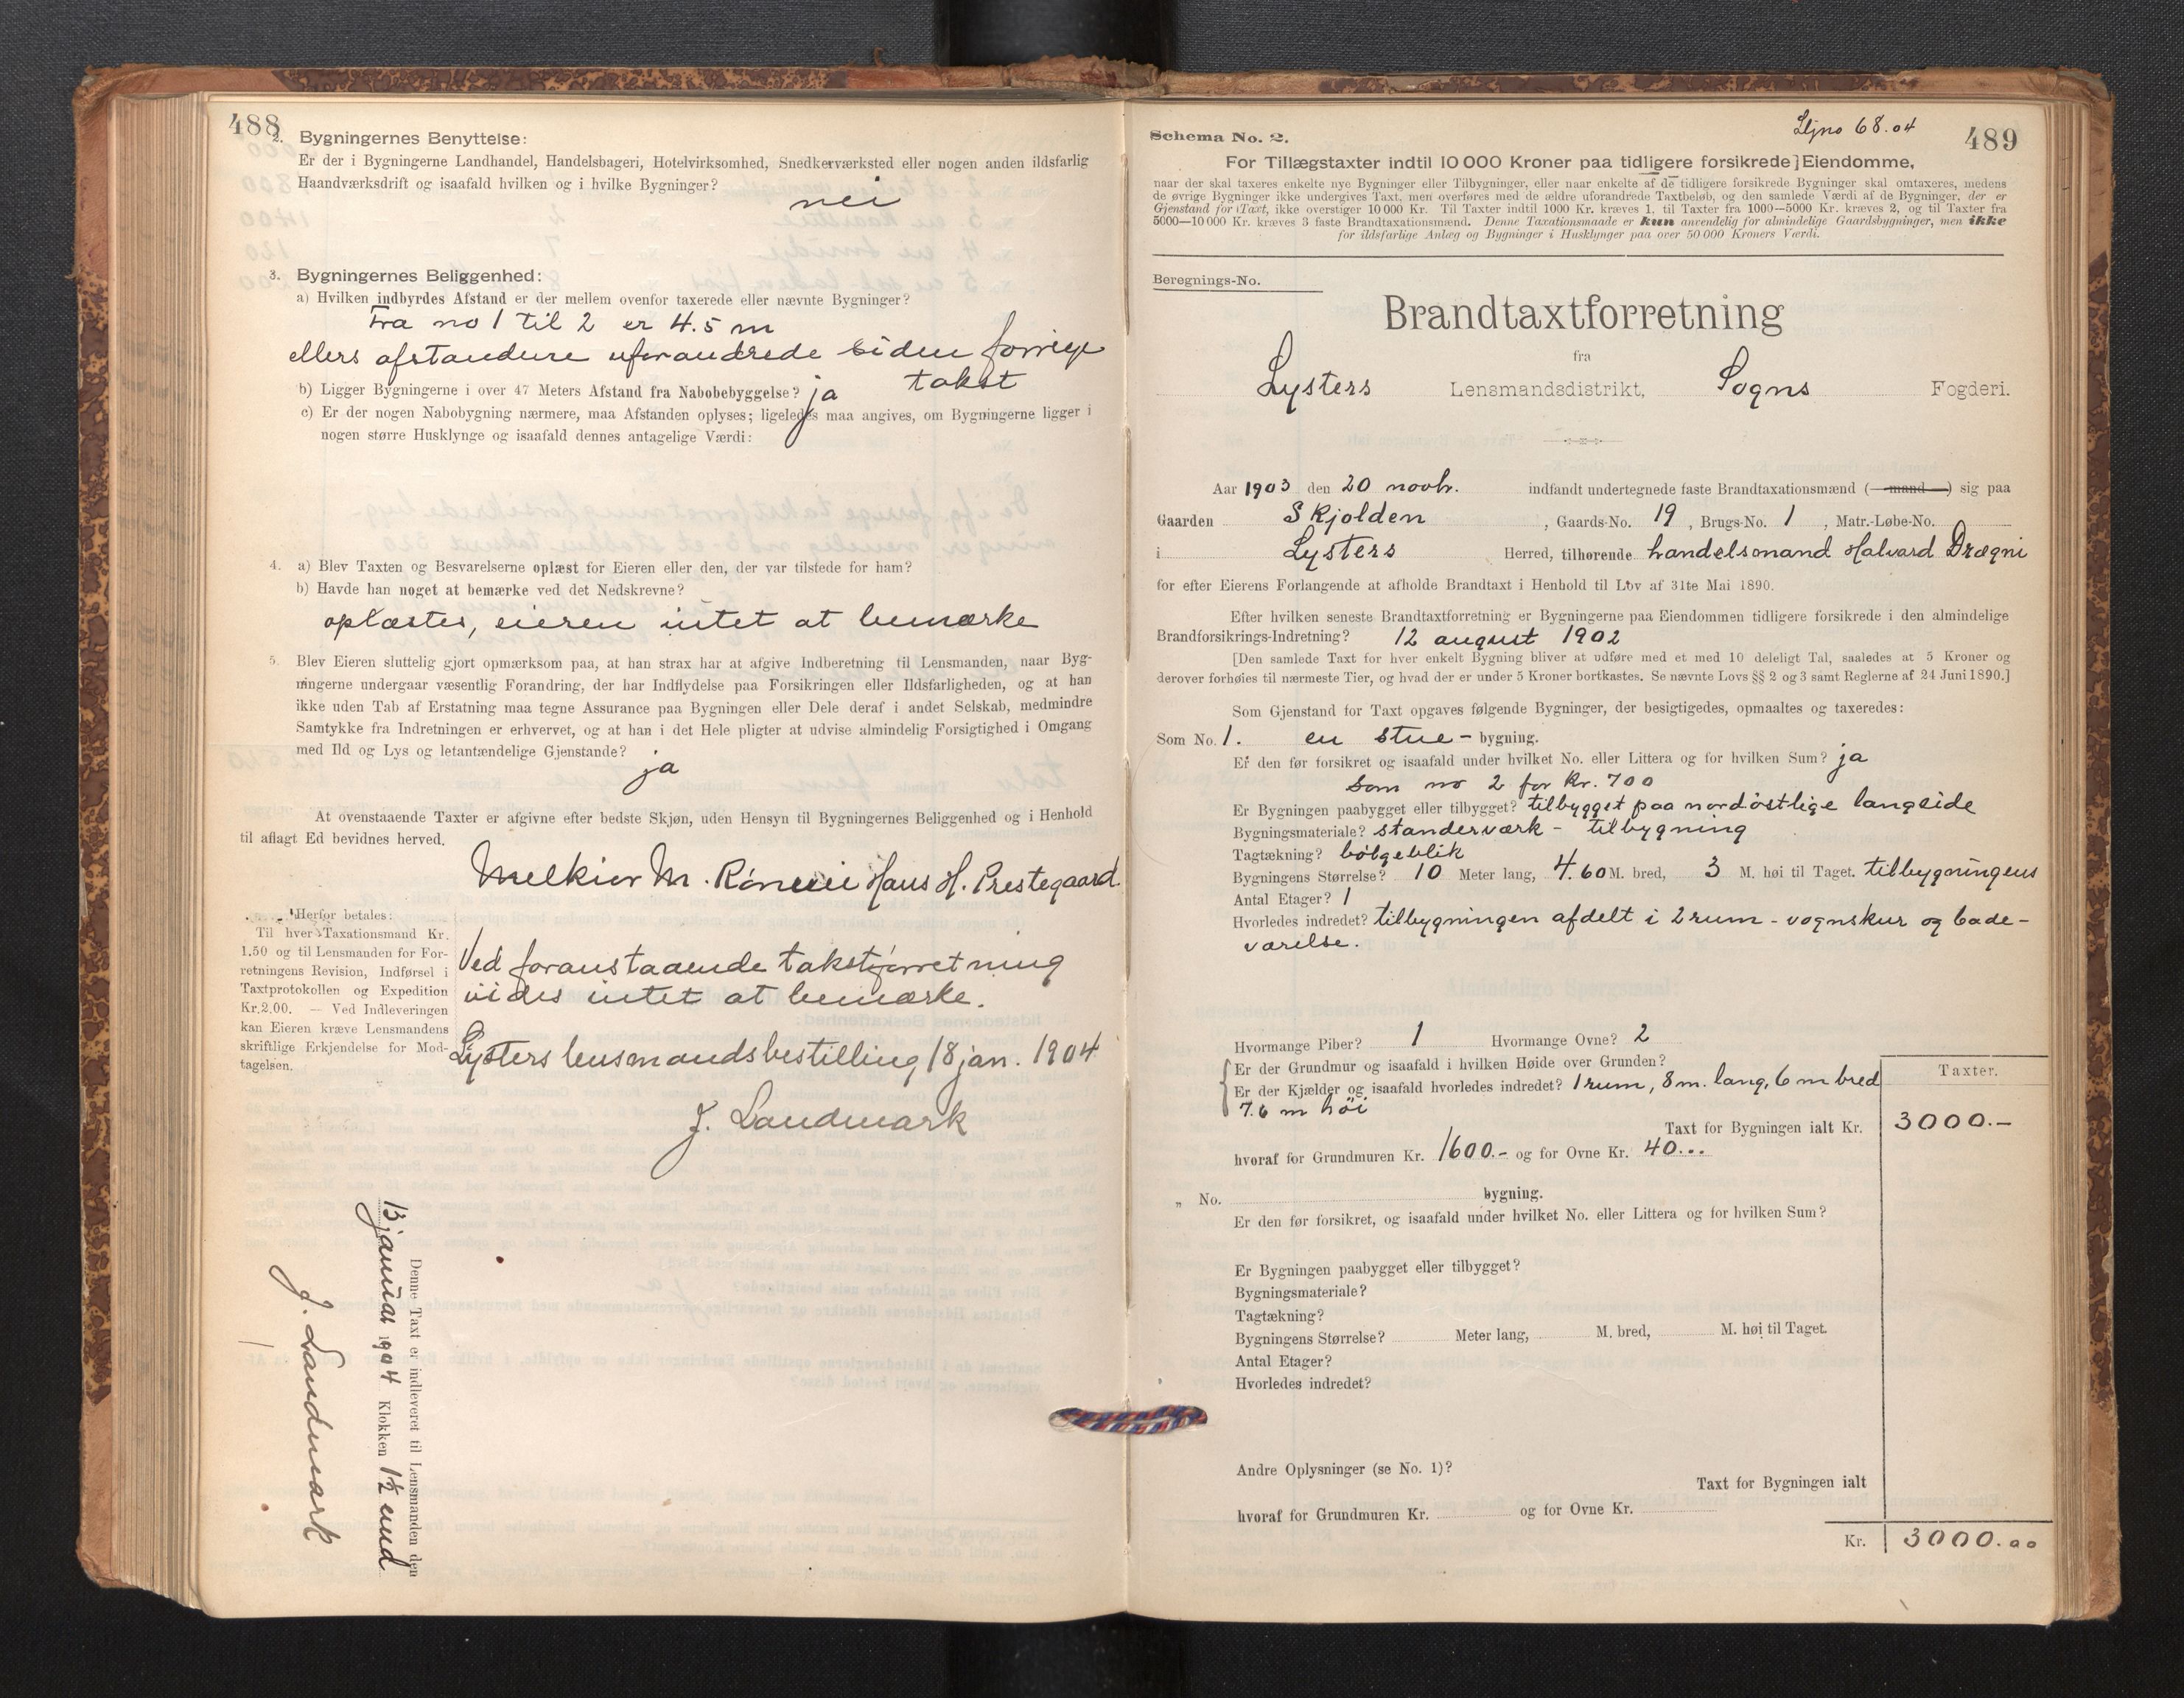 488
2. Bygningernes Benyttelse:
Er der i Bygningerne Landhandel, Handelsbageri, Hotelvirksomhed, Snedkerværksted eller nogen anden ildsfarlig
Haandværksdrift og isaafald hvilken og i hvilke Bygninger?
nei
3. Bygningernes Beliggenhed:
a) Hvilken indbyrdes Afstand er der mellem ovenfor taxerede eller nævnte Bygninger?
Fra no 1 til 2 er 4.5 m
ellers afstandene uforandrede siden forrige
takst
b) Ligger Bygningerne i over 47 Meters Afstand fra Nabobebyggelse? ja
c) Er der nogen Nabobygning nærmere, maa Afstanden oplyses; ligeledes maa angives, om Bygningerne ligger i
nogen større Husklynge og isaafald dennes antagelige Værdi:
4. a) Blev Taxten og Besvarelserne oplæst for Eieren eller den, der var tilstede for ham?
b) Havde han noget at bemærke ved det Nedskrevne?
oplæstes, eieren intet at bemærke
5. Blev Eieren sluttelig gjort opmærksom paa, at han strax har at afgive Indberetning til Lensmanden, naar Byg-
ningerne undergaar væsentlig Forandring, der har Indflydelse paa Forsikringen eller Ildsfarligheden, og at han
ikke uden Tab af Erstatning maa tegne Assurance paa Bygningen eller Dele deraf i andet Selskab, medmindre
Samtykke fra Indretningen er erhvervet, og at han i det Hele pligter at udvise almindelig Forsigtighed i Omgang
med Ild og Lys og letantændelige Gjenstande?
ja
At ovenstaaende Taxter er afgivne efter bedste Skjøn, uden Hensyn til Bygningernes Beliggenhed og i Henhold
til aflagt Ed bevidnes herved.
Melkior M. Rønnei Hans H. Prestegaard.
Herfor betales:
Til hver Taxationsmand Kr.
1.50 og til Lensmanden for For-
retningens Revision, Indførsel i
Taxtprotokollen og Expedition
Kr.2.00. — Ved Indleveringen
kan Eieren kræve Lensmandens
skriftlige Erkjendelse for Mod-
tagelsen.
Ved foranstaaende takstforretning
vides intet at bemærke.
Lysters lensmandsbestilling 18 jan. 1904
J. Landmark
Denne Taxt er indleveret til Lensmanden den
13 januar 1904 Klokken 1½ emd
J. Landmark
Schema No. 2.
Ljno 68.04
489
For Tillægstaxter indtil 10 000 Kroner paa tidligere forsikrede] Eiendomme,
naar der skal taxeres enkelte nye Bygninger eller Tilbygninger, eller naar enkelte af de tidligere forsikrede Bygninger skal omtaxeres, medens
de øvrige Bygninger ikke undergives Taxt, men overføres med de ældre uforandrede Taxtbeløb, og den samlede Værdi af de Bygninger, der er
Gjenstand for Taxt, ikke overstiger 10 000 Kr. Til Taxter indtil 1000 Kr. kræves 1, til Taxter fra 1000—5000 Kr. kræves 2, og til Taxter fra
5000—10 000 Kr. kræves 3 faste Brandtaxationsmænd. Denne Taxationsmaade er kun anvendelig for almindelige Gaardsbygninger, men ikke
for ildsfarlige Anlæg og Bygninger i Husklynger paa over 50 000 Kroners Værdi.
Beregnings-No.
Brandtaxtforretning
fra
Lysters Lensmandsdistrikt, Sogns Fogderi.
Aar 1903 den 20 novbr. indfandt undertegnede faste Brandtaxationsmænd (mand) sig paa
Gaarden Skjolden, Gaards-No. 19, Brugs-No. 1, Matr.-Løbe-No.
i Lysters Herred, tilhørende handelsmand Halvard Drægni
for efter Eierens Forlangende at afholde Brandtaxt i Henhold til Lov af 31te Mai 1890.
Efter hvilken seneste Brandtaxtforretning er Bygningerne paa Eiendommen tidligere forsikrede i den almindelige
Brandforsikrings-Indretning? 12 august 1902
[Den samlede Taxt for hver enkelt Bygning bliver at udføre med et med 10 deleligt Tal, saaledes at 5 Kroner og
derover forhøies til nærmeste Tier, og hvad der er under 5 Kroner bortkastes. Se nævnte Lovs §§ 2 og 3 samt Reglerne af 24 Juni 1890.]
Som Gjenstand for Taxt opgaves følgende Bygninger, der besigtigedes, opmaaltes og taxeredes:
Som No. 1. en stue- bygning.
Er den før forsikret og isaafald under hvilket No. eller Littera og for hvilken Sum? ja
som no 2 for kr. 700
Er Bygningen paabygget eller tilbygget? tilbygget paa nordöstlige langside
Bygningsmateriale? standerværk - tilbygning
Tagtækning? bölgeblik
Bygningens Størrelse? 10 Meter lang, 4.60 M. bred, 3 M. høi til Taget. tilbygningens
Antal Etager? 1
Hvorledes indredet? tilbygningen afdelt i 2 rum - vognskur og bade-
værelse.
Hvormange Piber? 1 Hvormange Ovne? 2
Er der Grundmur og isaafald i hvilken Høide over Grunden?
Er der Kjælder og isaafald hvorledes indredet? 1 rum, 8 m. lang, 6 m bred
7.6 m höi
Taxter.
Taxt for Bygningen ialt Kr. 3000.-
hvoraf for Grundmuren Kr. 1600.- og for Ovne Kr. 40...
„ No. bygning.
Er den før forsikret, og isaafald under hvilket No. eller Littera og for hvilken Sum?
Er Bygningen paabygget eller tilbygget?
Bygningsmateriale?
Tagtækning?
Bygningens Størrelse? Meter lang, M. bred, M. høi til Taget.
Antal Etager?
Hvorledes indredet?
Andre Oplysninger (se No. 1)?
Taxt for Bygningen ialt
hvoraf for Grundmuren Kr. og for Ovne Kr.
Kr. 3000.00